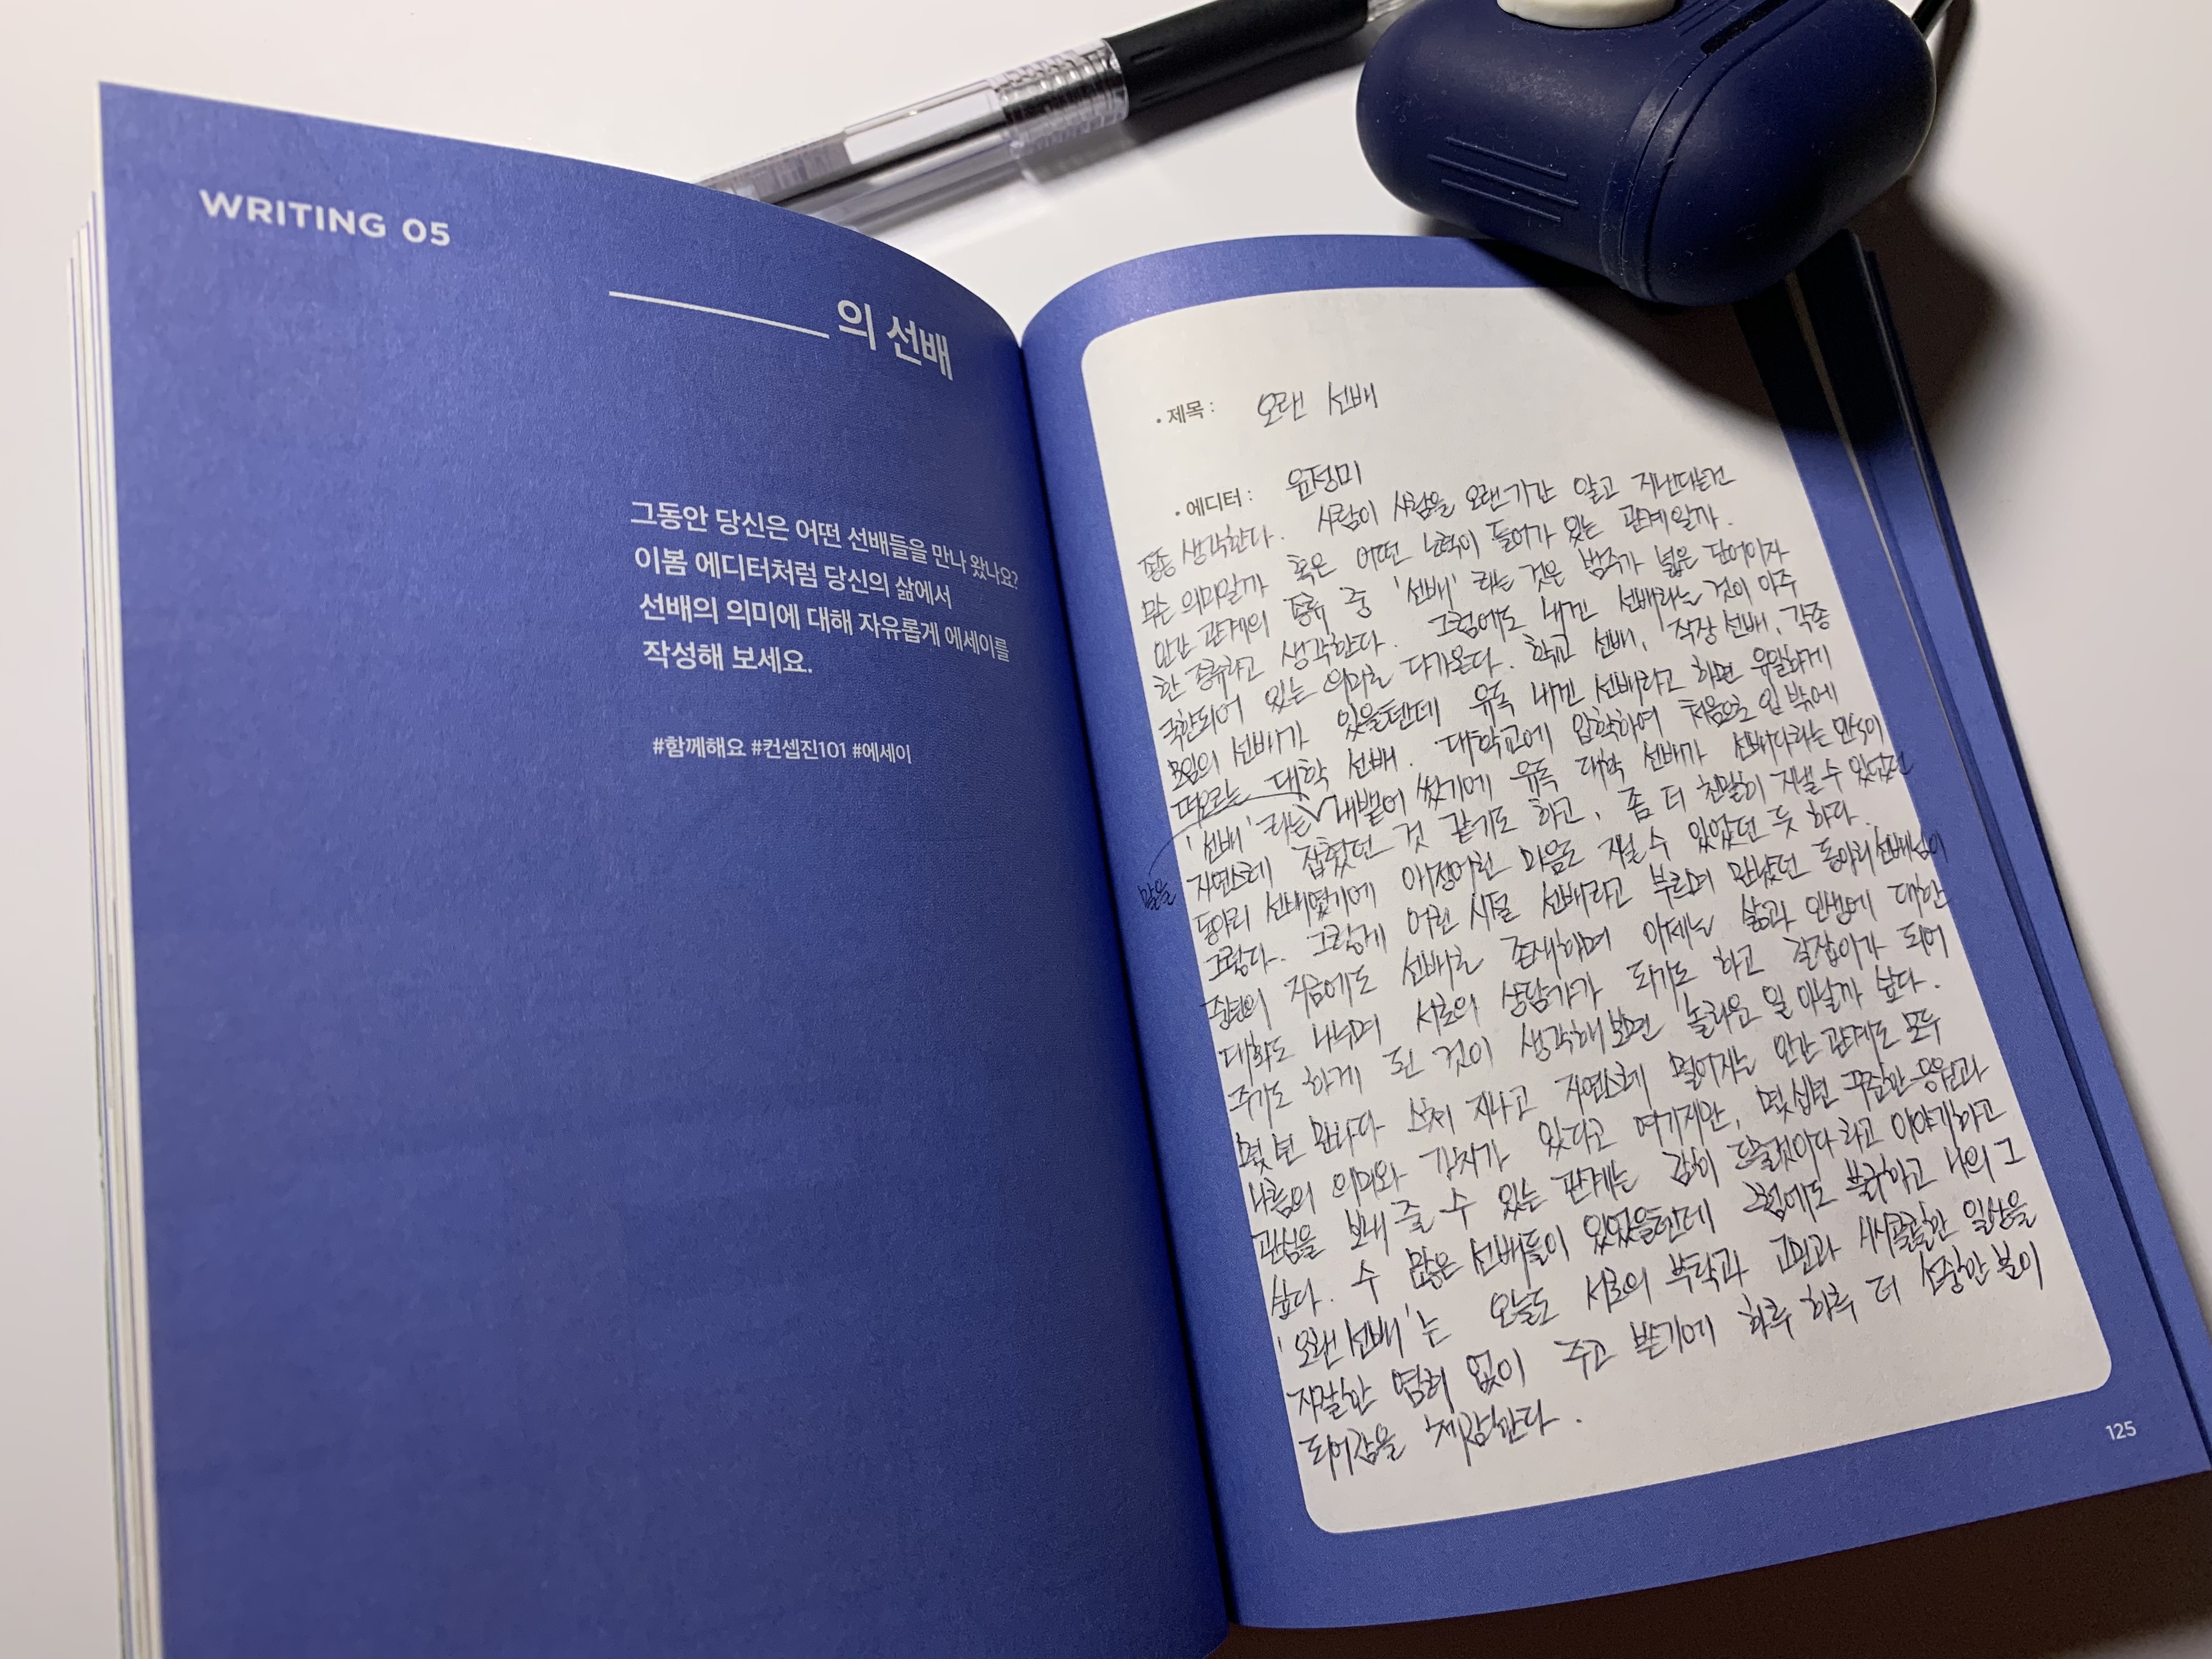 WRITING 05
의 선배
그동안 당신은 어떤 선배들을 만나 왔나요?
이봄 에디터처럼 당신의 삶에서
선배의 의미에 대해 자유롭게 에세이를
작성해 보세요.
#함께해요 #컨셉진101 #에세이
• 제목 : 오랜 선배
• 에디터 : 윤정미
종종 생각한다. 사람이 사람을 오랜기간 알고 지낸다는건
무슨 의미일까 혹은 어떤 노력이 들어가 있는 관계일까.
인간 관계의 종류 중 '선배' 라는 것은 범주가 넓은 단어이자
한 종류라고 생각한다. 그럼에도 내겐 선배라는 것이 아주
국한되어 있는 의미로 다가온다. 학교 선배, 직장 선배, 각종
모임의 선배가 있을텐데 유독 내겐 선배라고 하면 유일하게
떠오르는 대학 선배. 대학교에 입학하여 처음으로 입 밖에
'선배' 라는 말을 내뱉어 봤기에 유독 대학 선배가 선배다라는 인식이
자연스레 잡혔던 것 같기도 하고, 좀 더 친밀히 지낼 수 있었던
동아리 선배였기에 애정어린 마음도 지닐 수 있었던 듯 하다.
그렇다. 그렇게 어린 시절 선배라고 부르며 만났던 동아리 선배님이
지금에도 선배로 존재하며 이제는 삶과 인생에 대한
대화도 나누며 서로의 상담가가 되기도 하고 길잡이가 되어
주기도 하게 된 것이 생각해보면 놀라운 일 아닐까 싶다.
몇 번 만나다 스쳐 지나고 자연스레 멀어지는 인간 관계도 모두
나름의 의미와 가치가 있다고 여기지만, 몇십년 꾸준한 응원과
관심을 보내 줄 수 있는 관계는 감히 드물것이다 라고 이야기하고
싶다. 수 많은 선배들이 있었을텐데 그럼에도 불구하고 나의 그
'오랜 선배'는 오늘도 서로의 부탁과 고민과 시시콜콜한 일상을
자잘한 염려 없이 주고 받기에 하루 하루 더 소중한 분이
되어감을 체감한다.
125